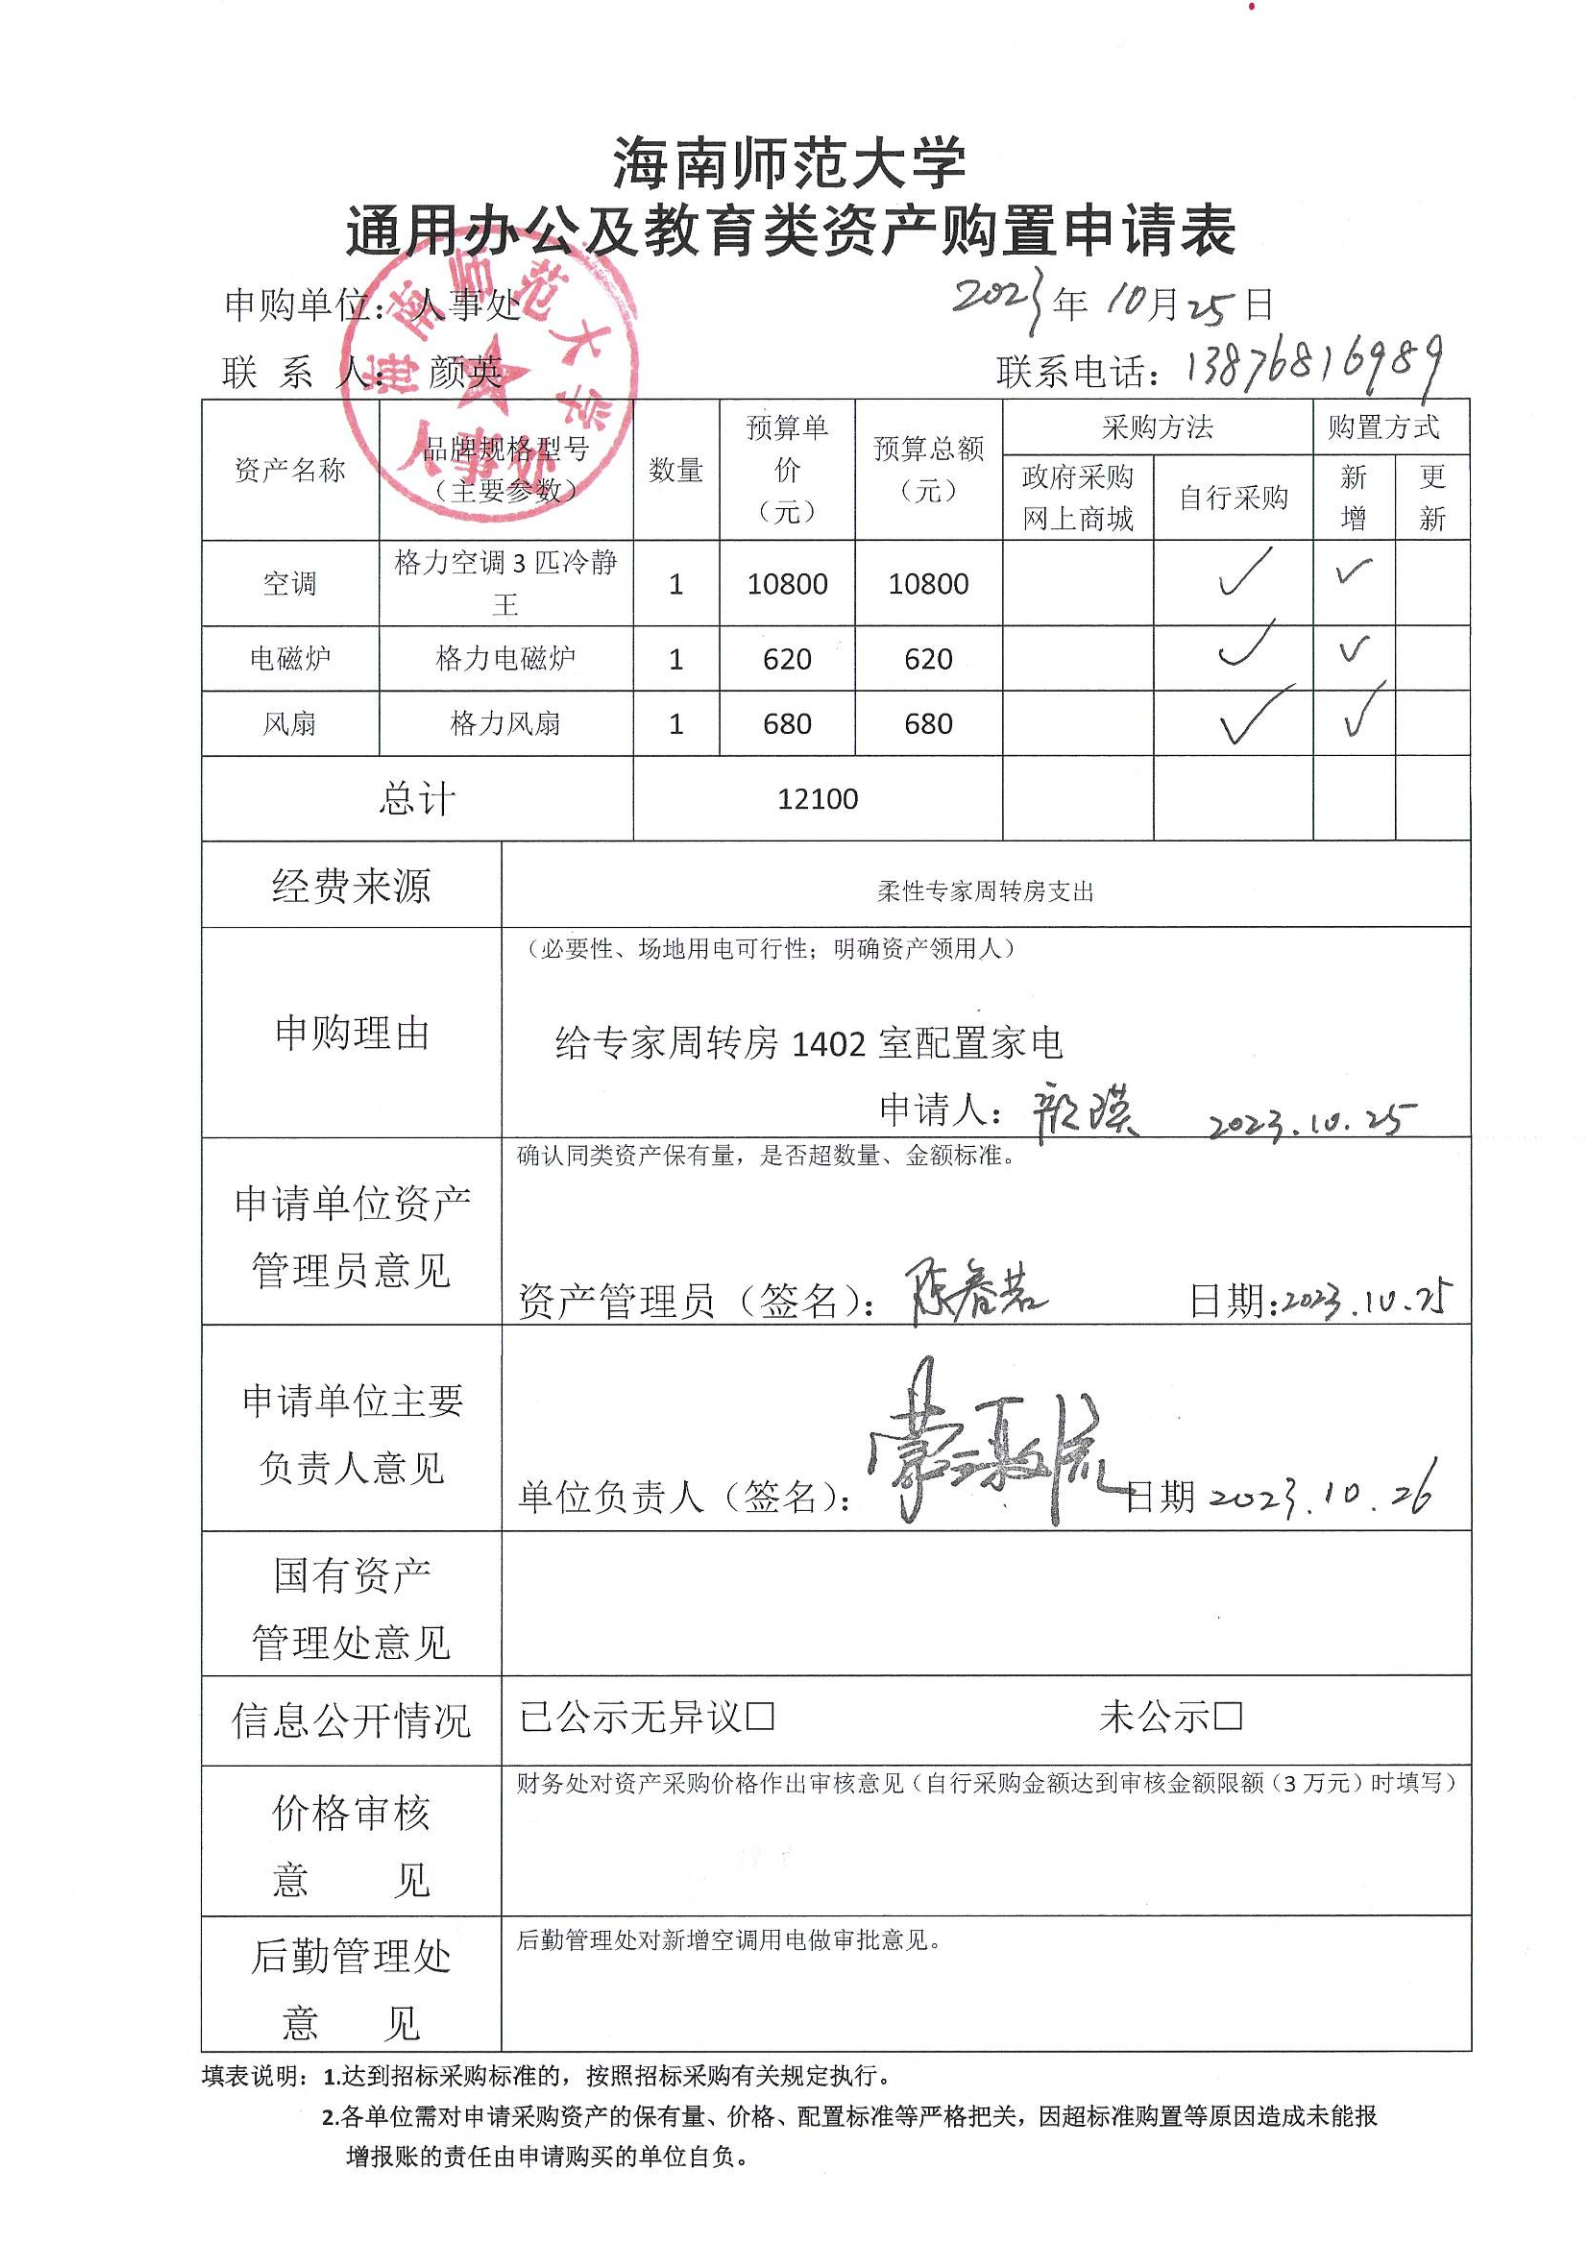 海南师范大学
通用办公及教育类资产购置申请表
申购单位：人事处 2023年10月25日
联 系 人：颜英 联系电话：13876816989
海南师范大学
人事处
资产名称 品牌规格型号（主要参数） 数量 预算单价（元） 预算总额（元） 采购方法 购置方式
政府采购网上商城 自行采购 新增 更新
空调 格力空调 3 匹冷静王 1 10800 10800 ✓ ✓
电磁炉 格力电磁炉 1 620 620 ✓ ✓
风扇 格力风扇 1 680 680 ✓ ✓
总计 12100
经费来源 柔性专家周转房支出
申购理由
（必要性、场地用电可行性；明确资产领用人）
给专家周转房 1402 室配置家电
申请人： 2023.10.25
申请单位资产
管理员意见
确认同类资产保有量，是否超数量、金额标准。
资产管理员（签名）： 日期:2023.10.25
申请单位主要
负责人意见
单位负责人（签名）： 日期 2023.10.26
国有资产
管理处意见
信息公开情况 已公示无异议□ 未公示□
价格审核
意 见
财务处对资产采购价格作出审核意见（自行采购金额达到审核金额限额（3 万元）时填写）
后勤管理处
意 见
后勤管理处对新增空调用电做审批意见。
填表说明：1.达到招标采购标准的，按照招标采购有关规定执行。
2.各单位需对申请采购资产的保有量、价格、配置标准等严格把关，因超标准购置等原因造成未能报
增报账的责任由申请购买的单位自负。